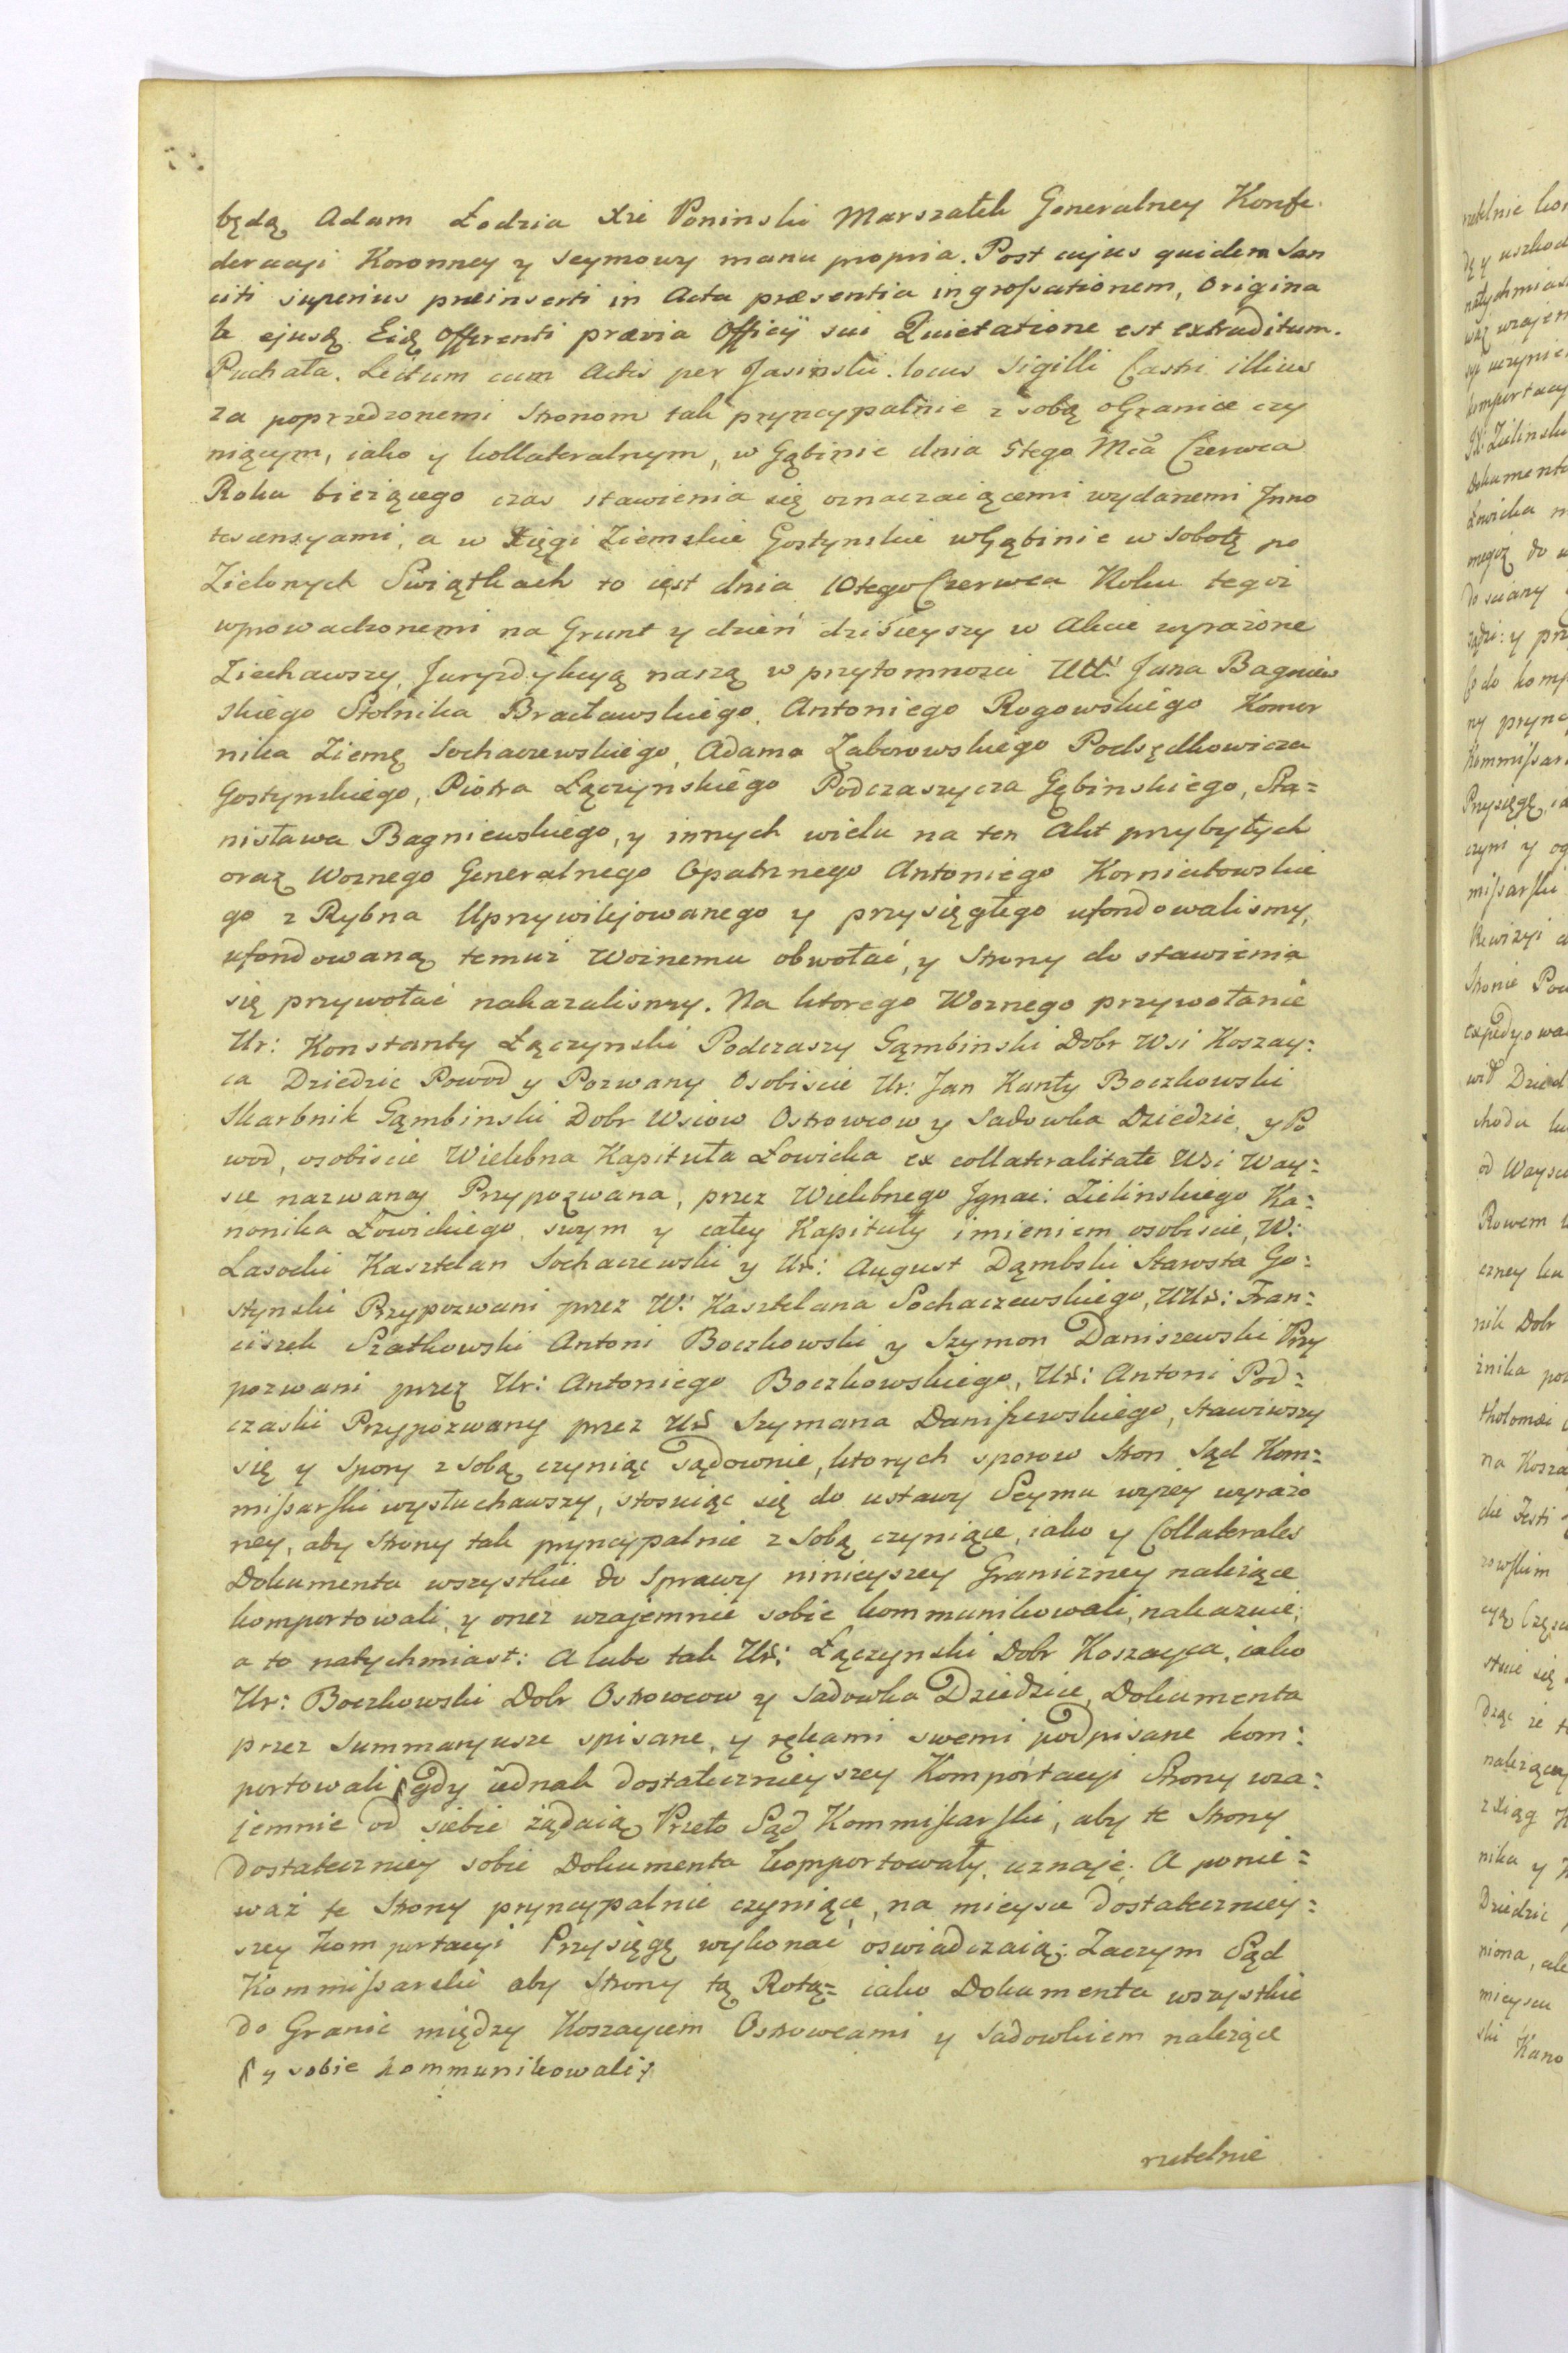 będą Adam Łodzia Xże Poninski Marszałek Generalney Konfe.
deracyi Koronney y Seymowy manu propria. Post cujus quidem San
citi superius præinserti in Acta præsentia ingroſsationem, Origina
le ejusdꝫ Eidꝫ Offerenti prævia Officij sui Quietatione est extraditum.
Puchała. Lectum cum Actis per Jasinski. locus Sigilli Castri illius
za poprzedzonemi Stronom tak pryncypalnie z sobą oGranice czy
niącym, iako y kollateralnym, w Gąbinie dnia 5tego Mca Czerwca
Roku bieżącego czas stawienia się oznaczaiącemi wydanemi Inno
tescensyami, a w Xięgi Ziemskie Gostynskie wGąbinie w Sobotę po
Zielonych Swiątkach to iest dnia 10tego Czerwca Roku tegoż
wprowadzonemi na Grunt y dzień dzisieyszy w Akcie wyrażone
Ziechawszy, Juryzdykcyą naszą w przytomnosci UU: Jana Bagniew
skiego Stolnika Bracławskiego, Antoniego Rogowskiego Komor
nika Ziemę Sochaczewskiego, Adama Zaborowskiego Podsędkowicza
Gostynskiego, Piotra Łączynskiego Podczaszycza Gębinskiego, Sta=
nisława Bagniewskiego, y innych wielu na ten Akt przybyłych
oraz Woznego Generalnego Opatrznego Antoniego Korniatowskie
go z Rybna Uprzywilejowanego y przysięgłego ufondowalismy,
ufondowaną temuż Woznemu obwołać, y Strony do stawienia
się przywołać nakazalismy. Na ktorego Woznego przywołanie
Ur: Konstanty Łączynski Podczaszy Gąmbinski Dobr Wsi Koszay:
ca Dziedzic Powod y Pozwany Osobiscie Ur: Jan Kanty Boczkowski
Skarbnik Gąmbinski Dobr Wsiow Ostrowcow y Sadowka Dziedzic, y Po
wod, osobiscie Wielebna Kapituła Łowicka ex collateralitate Wsi Way:
sce nazwaney Przypozwana, przez Wielebnego Jgnac: Zielinskiego Ka=
nonika Łowickiego, swym y całey Kapituły imieniem osobiscie, W:
Lasocki Kasztelan Sochaczewski y Ur: August Dąmbski Starosta Go=
stynski Przypozwani przez W: Kasztelana Sochaczewskiego, UUr: Fran=
ciszek Szatkowski Antoni Boczkowski y Szymon Daniszewski Przy
pozwani przez Ur: Antoniego Boczkowskiego, Ur: Antoni Pod=
czaski Przypozwany przez Ur Szymana Daniſzewskiego, stawiwszy
się y Spory z sobą czyniąc Sądownie, ktorych sporow Stron Sąd Kom=
miſsarſki wysłuchawszy, stosuiąc się do ustawy Seymu wyżey wyrażo
ney, aby Strony tak pryncypalnie z sobą czyniące, iako y Collaterales
Dokumenta wszystkie do Sprawy ninieyszey Graniczney należące
komportowali, y onez wzajemnie sobie kommunikowali, nakazuie;
a to natychmiast: A lubo tak Ur: Łączynski Dobr Koszayca, iako
Ur: Boczkowski Dobr Ostrowcow y Sadowka Dziedzice, Dokumenta
przez Summaryusze spisane, y rękami swemi podpisane kom:
portowali ſ gdy iednak dostatecznieyszey Komportacyi Strony wza:
jemnie od siebie żądaią Przeto Sąd Kommiſsarſki, aby te Strony
dostateczniey sobie Dokumenta komportowały, uznaje. A ponie=
waż te Strony pryncypalnie czyniące, na mieysce dostateczniey=
szey komportacyi Przysięgę wykonać oswiadczaią: Zaczym Sąd
Kommiſsarski aby Strony tą Rotą= iako Dokumenta wszystkie
do Granic między Koszaycem Ostrowcami y Sadowkiem należące
ſ y sobie kommunikowali ſ
rzetelnie